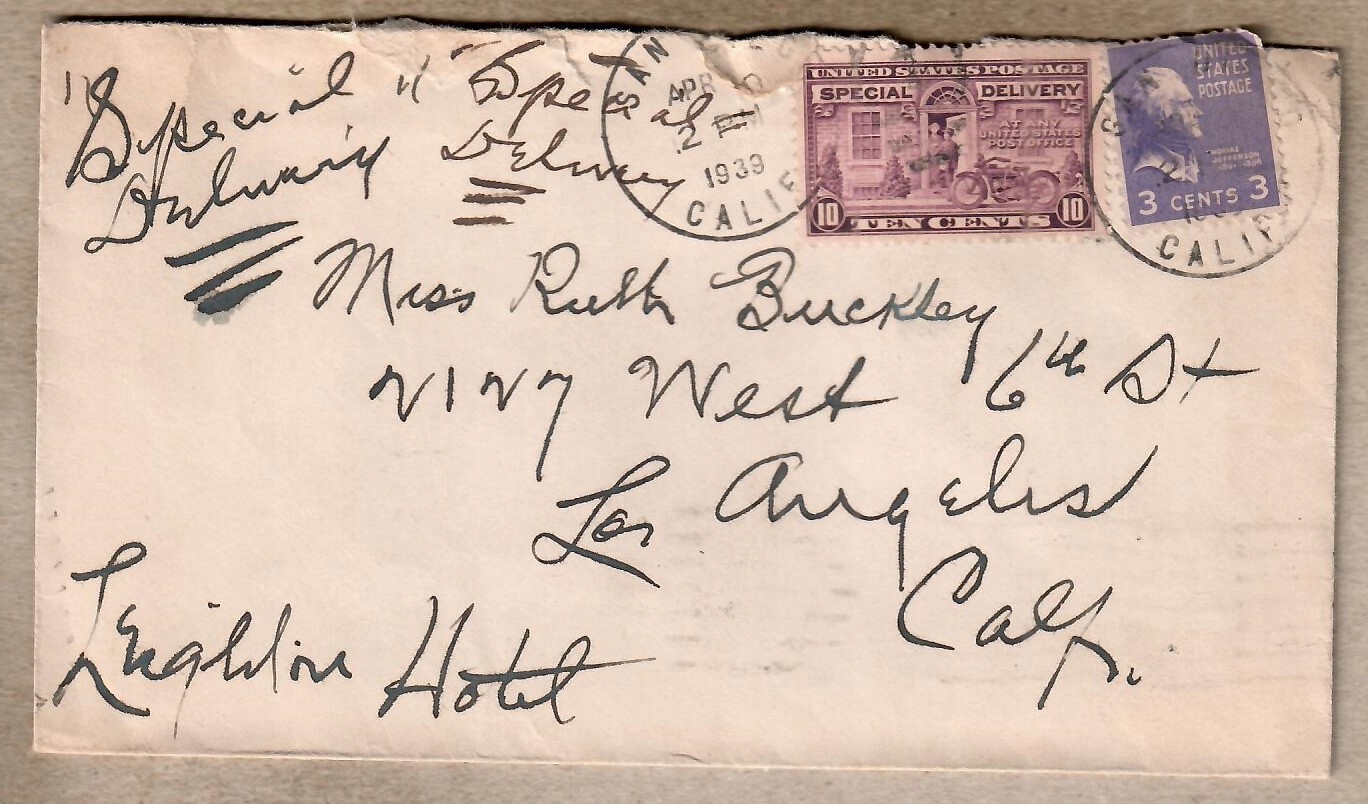 "Special"
Delivery
"Special
Delivery
SAN
APR
2 PM
1939
CALIF
UNITED STATES POSTAGE
SPECIAL DELIVERY
AT ANY
UNITED STATES
POST OFFICE
10 TEN CENTS 10
UNITED
STATES
POSTAGE
THOMAS
JEFFERSON
3 CENTS 3
SAN
CALIF
Miss Ruth Buckley
2127 West 6th St
Los Angeles
Calf.
Leighton Hotel